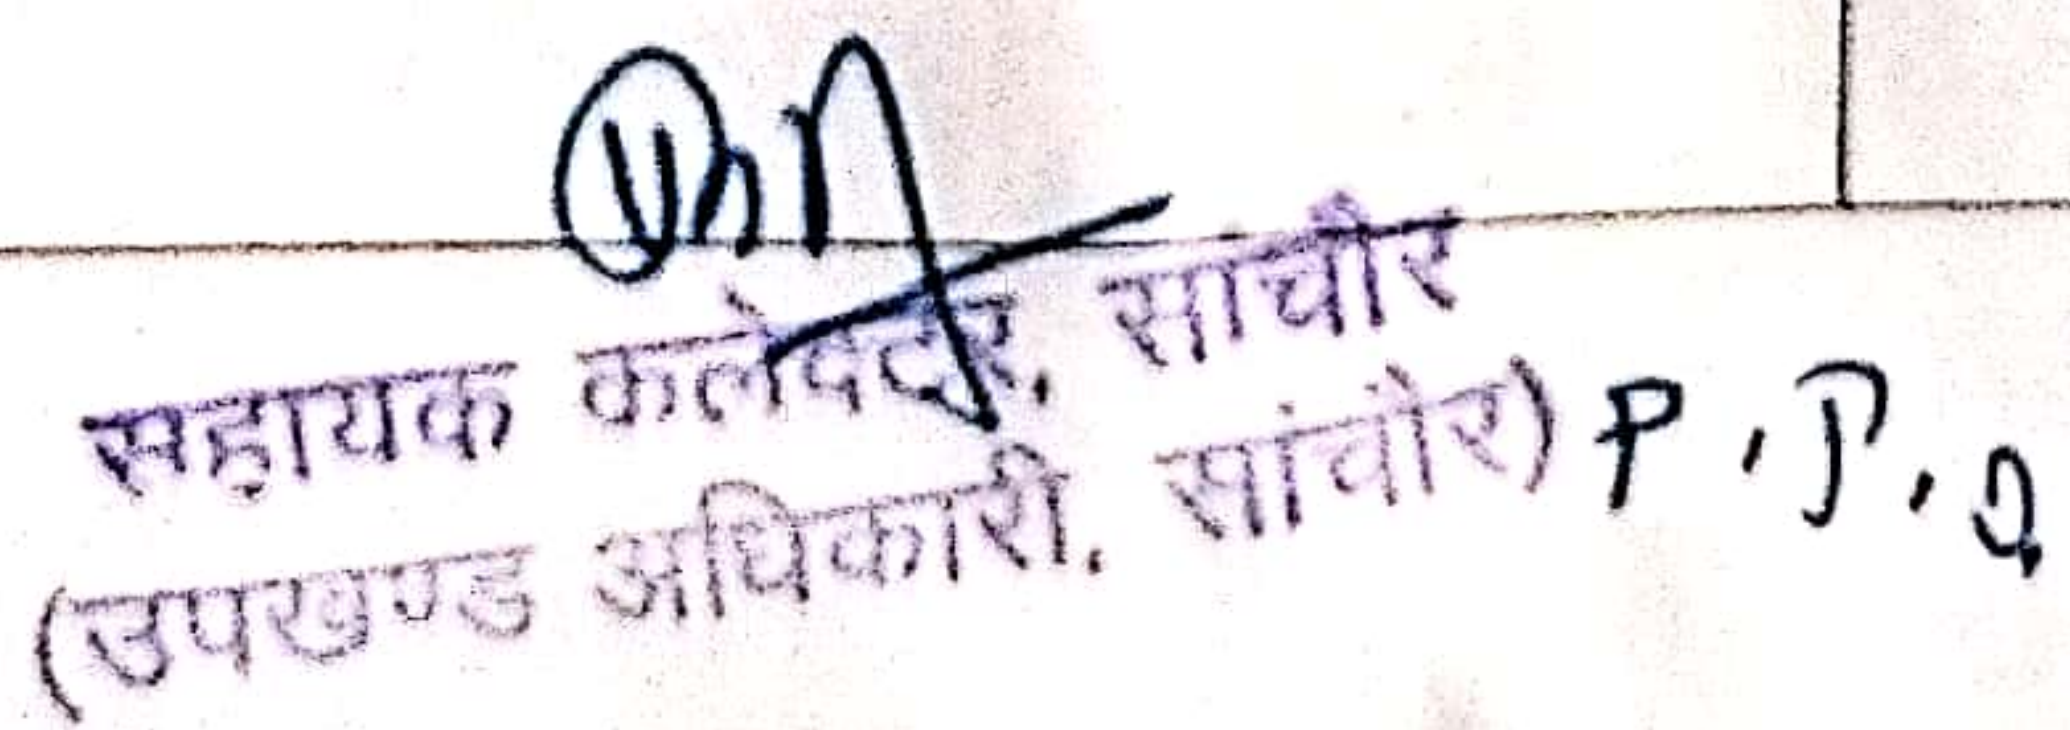 सहायक कलेक्टर, सांचौर
(उपखण्ड अधिकारी, सांचौर) P.T.O